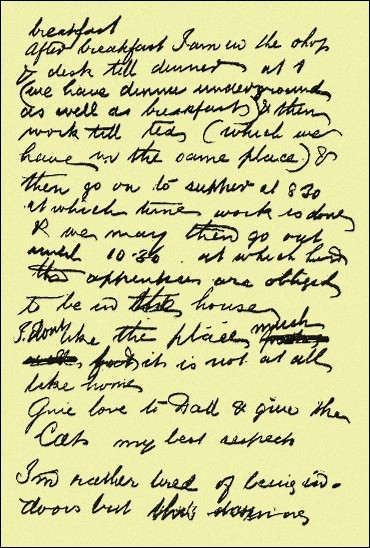 breakfast
after breakfast I am in the shop
& desk till dinner at 1
(we have dinner underground
as well as breakfast) & then
work till tea (which we
have in the same place) &
then go on to supper at 8 30
at which time work is done
& we may then go out
until 10.30 at which
the apprentices are obliged
to be in the house
I dont like the place much
for it is not at all
like home
Give love to Dad & give the
Cats my best respects
I'm rather tired of being in-
doors but